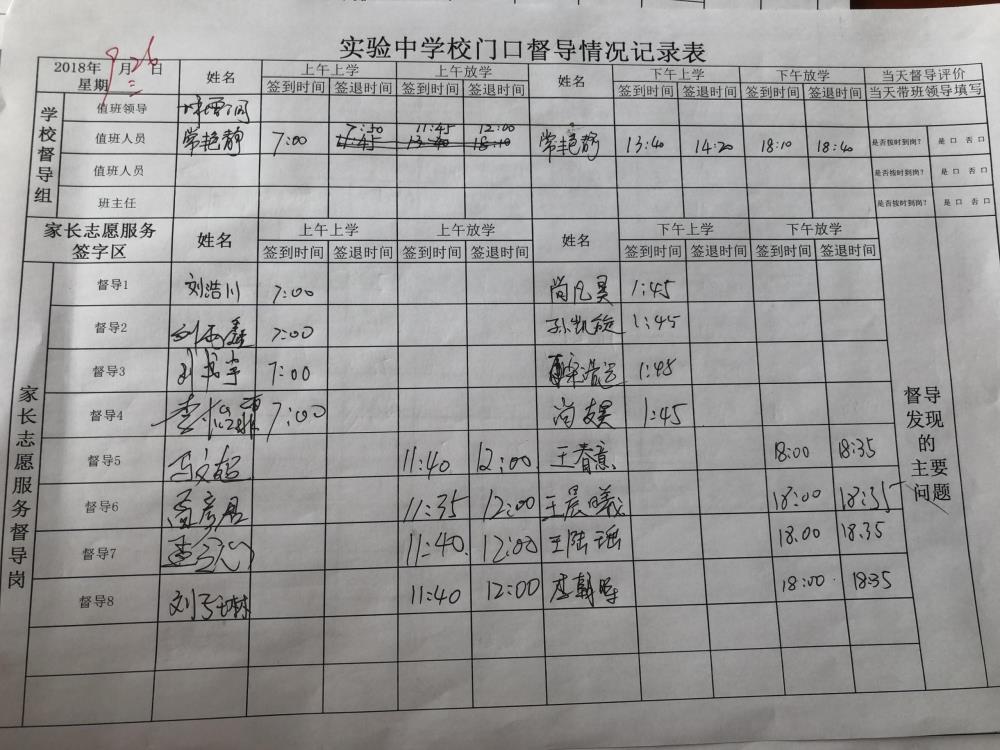 实验中学校门口督导情况记录表
2018年9月26日
星期三
姓名 上午上学 上午放学 姓名 下午上学 下午放学 当天督导评价
签到时间 签退时间 签到时间 签退时间 签到时间 签退时间 签到时间 签退时间 当天带班领导填写
学校督导组
值班领导
7:50 11:45 12:00
值班人员 常艳静 7:00 11:45 13:40 18:10 常艳静 13:40 14:20 18:10 18:40 是否按时到岗? 是 口 否 口
值班人员 是否按时到岗? 是 口 否 口
班主任 是否按时到岗? 是 口 否 口
家长志愿服务签字区 姓名 上午上学 上午放学 姓名 下午上学 下午放学
签到时间 签退时间 签到时间 签退时间 签到时间 签退时间 签到时间 签退时间
家长志愿服务督导岗
督导1 刘浩川 7:00 尚凡昊 1:45
督导2 刘雨鑫 7:00 孙凯旋 1:45
督导3 7:00 1:45
督导4 7:00 尚友昊 1:45
督导5 11:40 12:00 王春意 18:00 18:35
督导6 11:35 12:00 王晨曦 18:00 18:35
督导7 11:40 12:00 王陆瑶 18:00 18:35
督导8 11:40 12:00 18:00 18:35
督导发现的主要问题